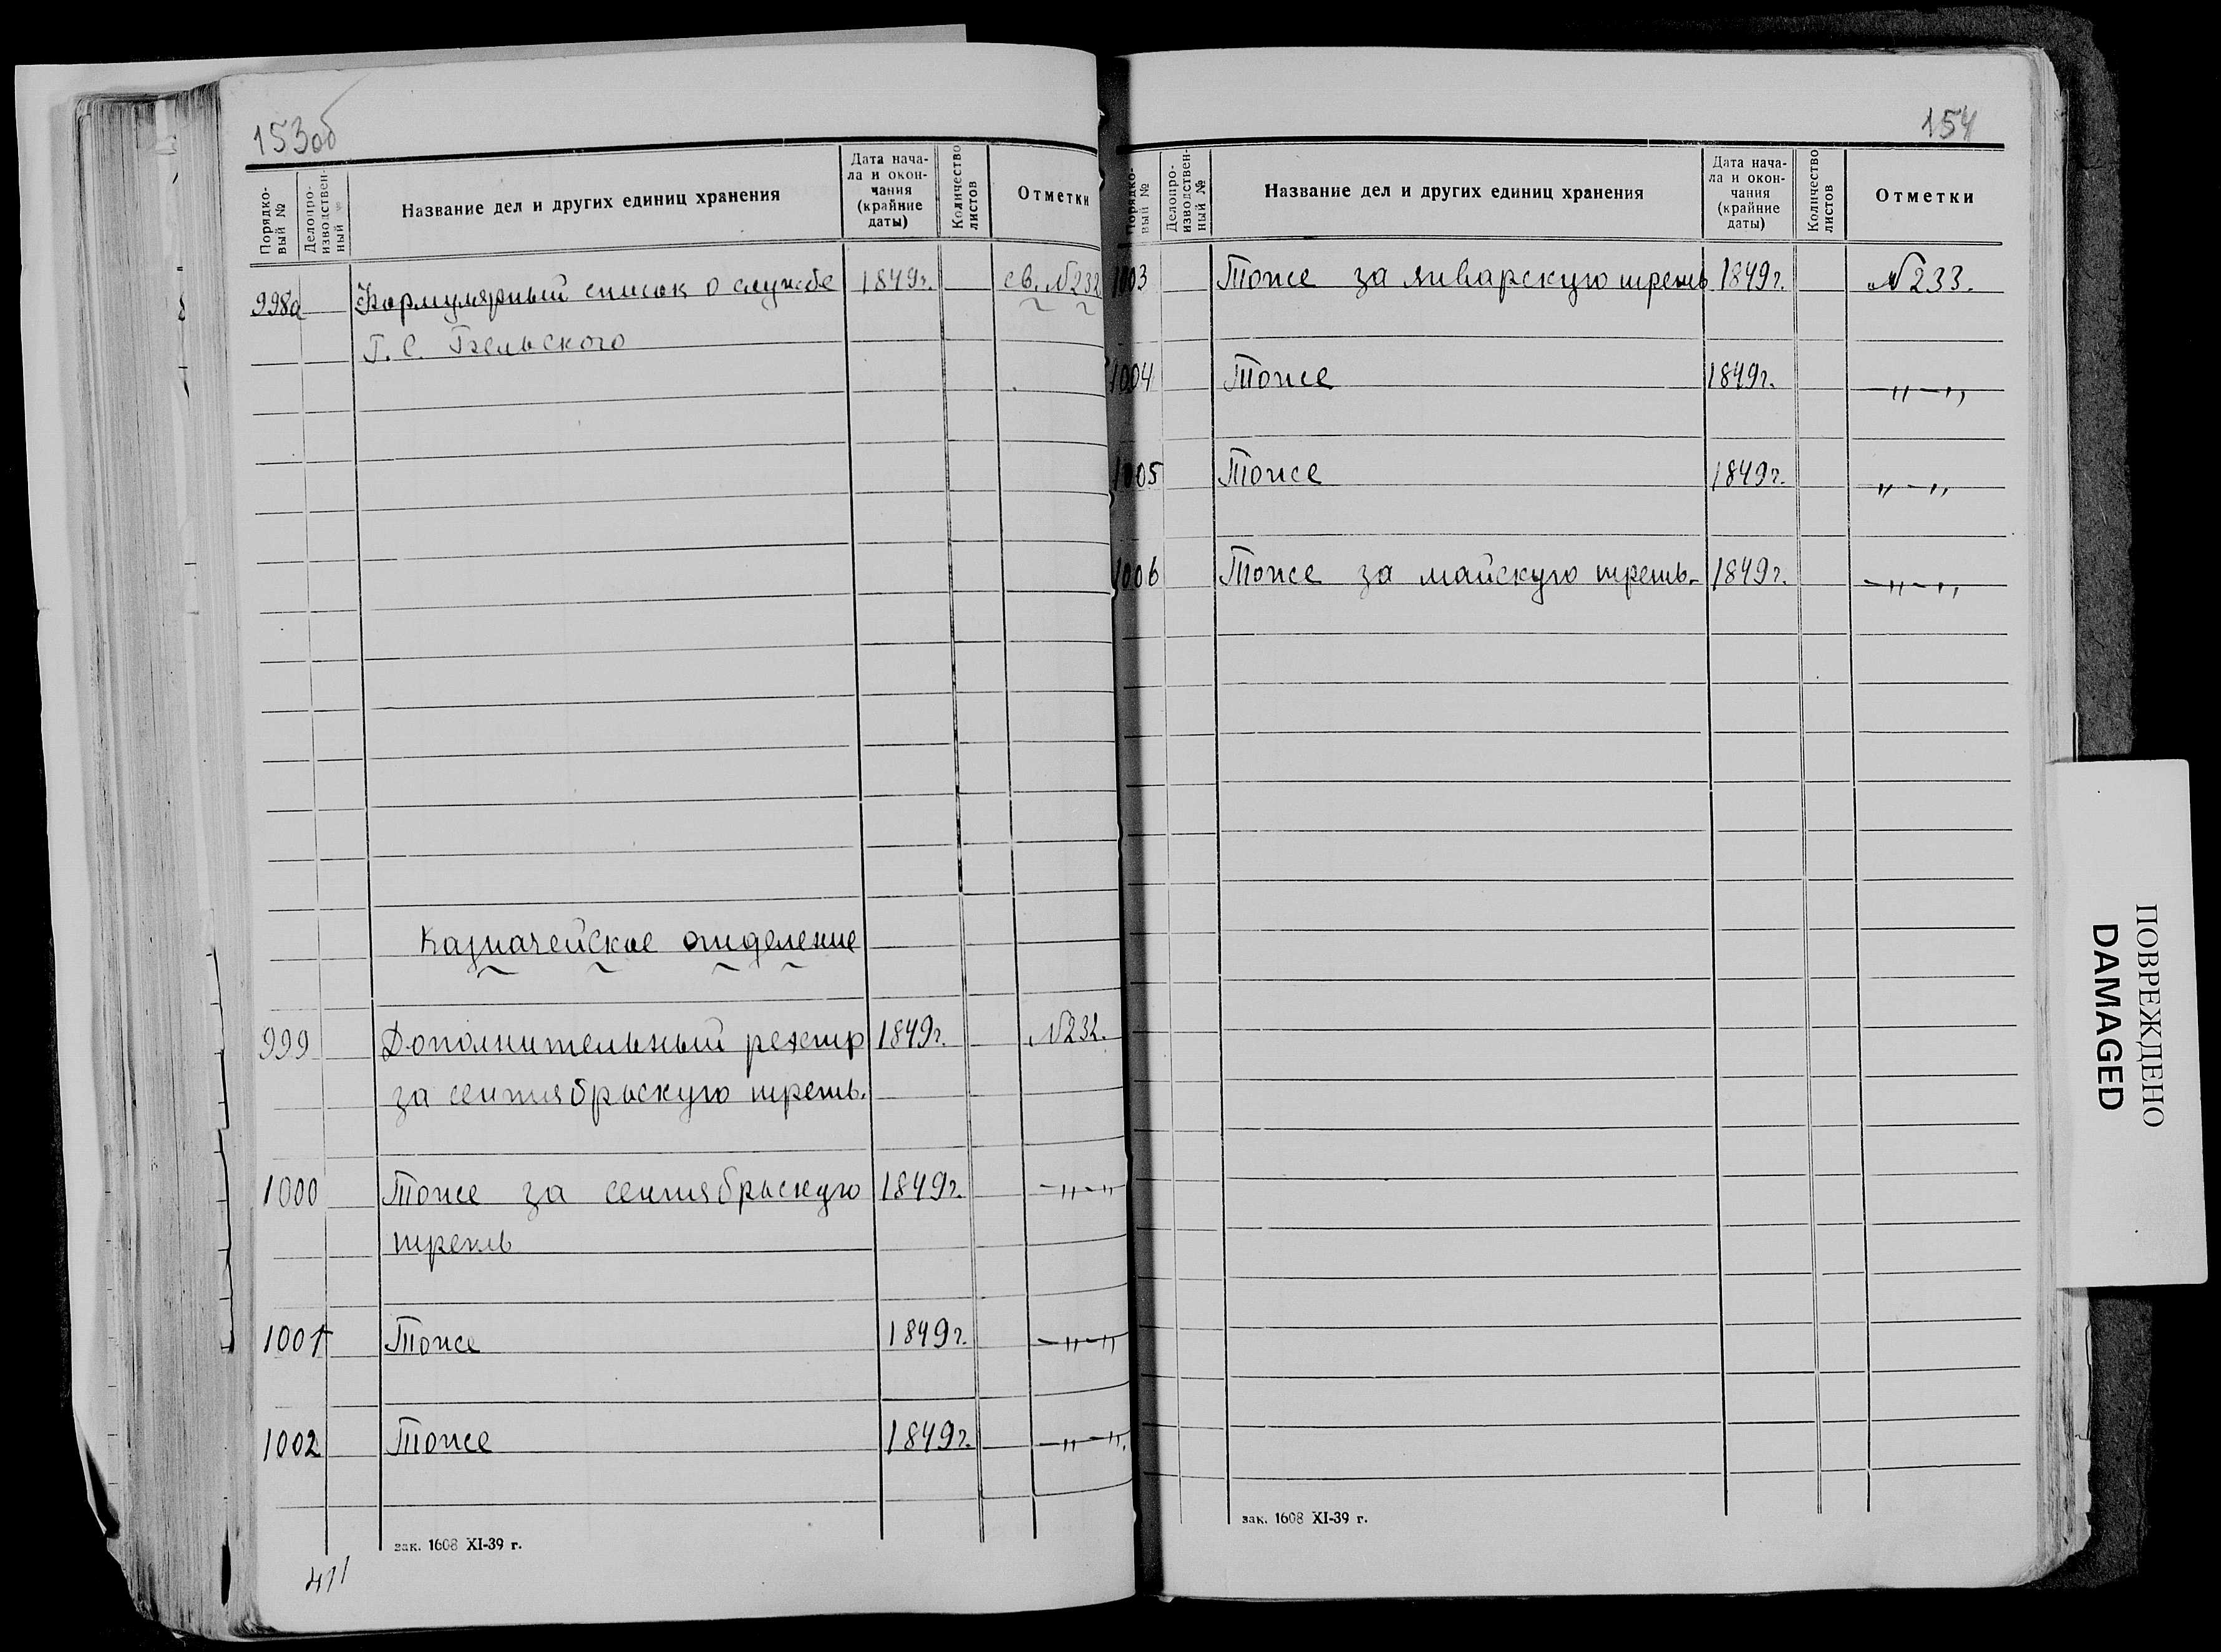 153об
Порядковый № Делопроизводственный № Название дел и других единиц хранения Дата начала и окончания (крайние даты) Количество листов Отметки
998а Формулярный список о службе 1849г. св. №232
Г. С. Бельского
Казначейское отделение
999 Дополнительный реестр 1849г. №232.
за сентябрьскую треть.
1000 Тоже за сентябрьскую 1849г. -„-„
треть
1001 Тоже 1849г. -„-„
1002 Тоже 1849г. -„-„.
зак. 1608 XI-39 г.
411
154
Порядковый № Делопроизводственный № Название дел и других единиц хранения Дата начала и окончания (крайние даты) Количество листов Отметки
1003 Тоже за январскую треть 1849г. №233.
1004 Тоже 1849г. -„-„
1005 Тоже 1849г. „-„
1006 Тоже за майскую треть. 1849г. -„-„
зак. 1608 XI-39 г.
ПОВРЕЖДЕНО
DAMAGED